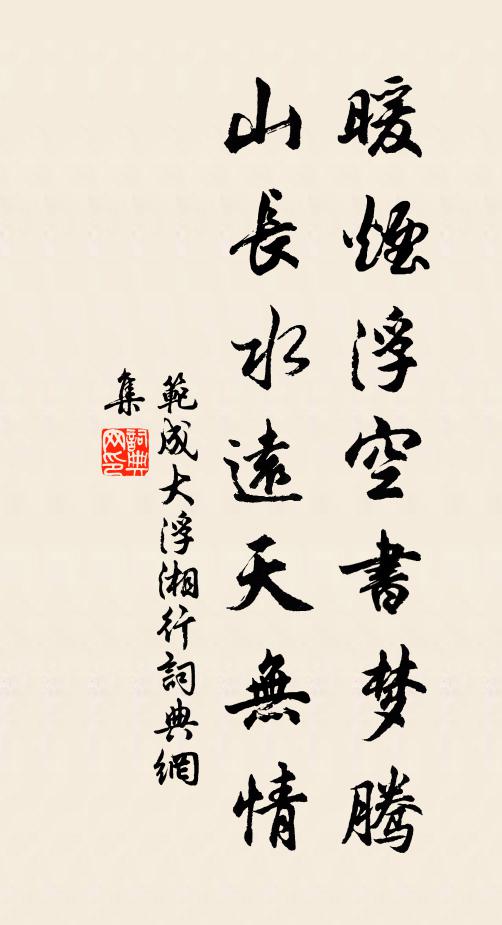 暖煙浮空書梦騰
山長水遠天無情
範成大浮湘行詞典網
集
詞典
网印